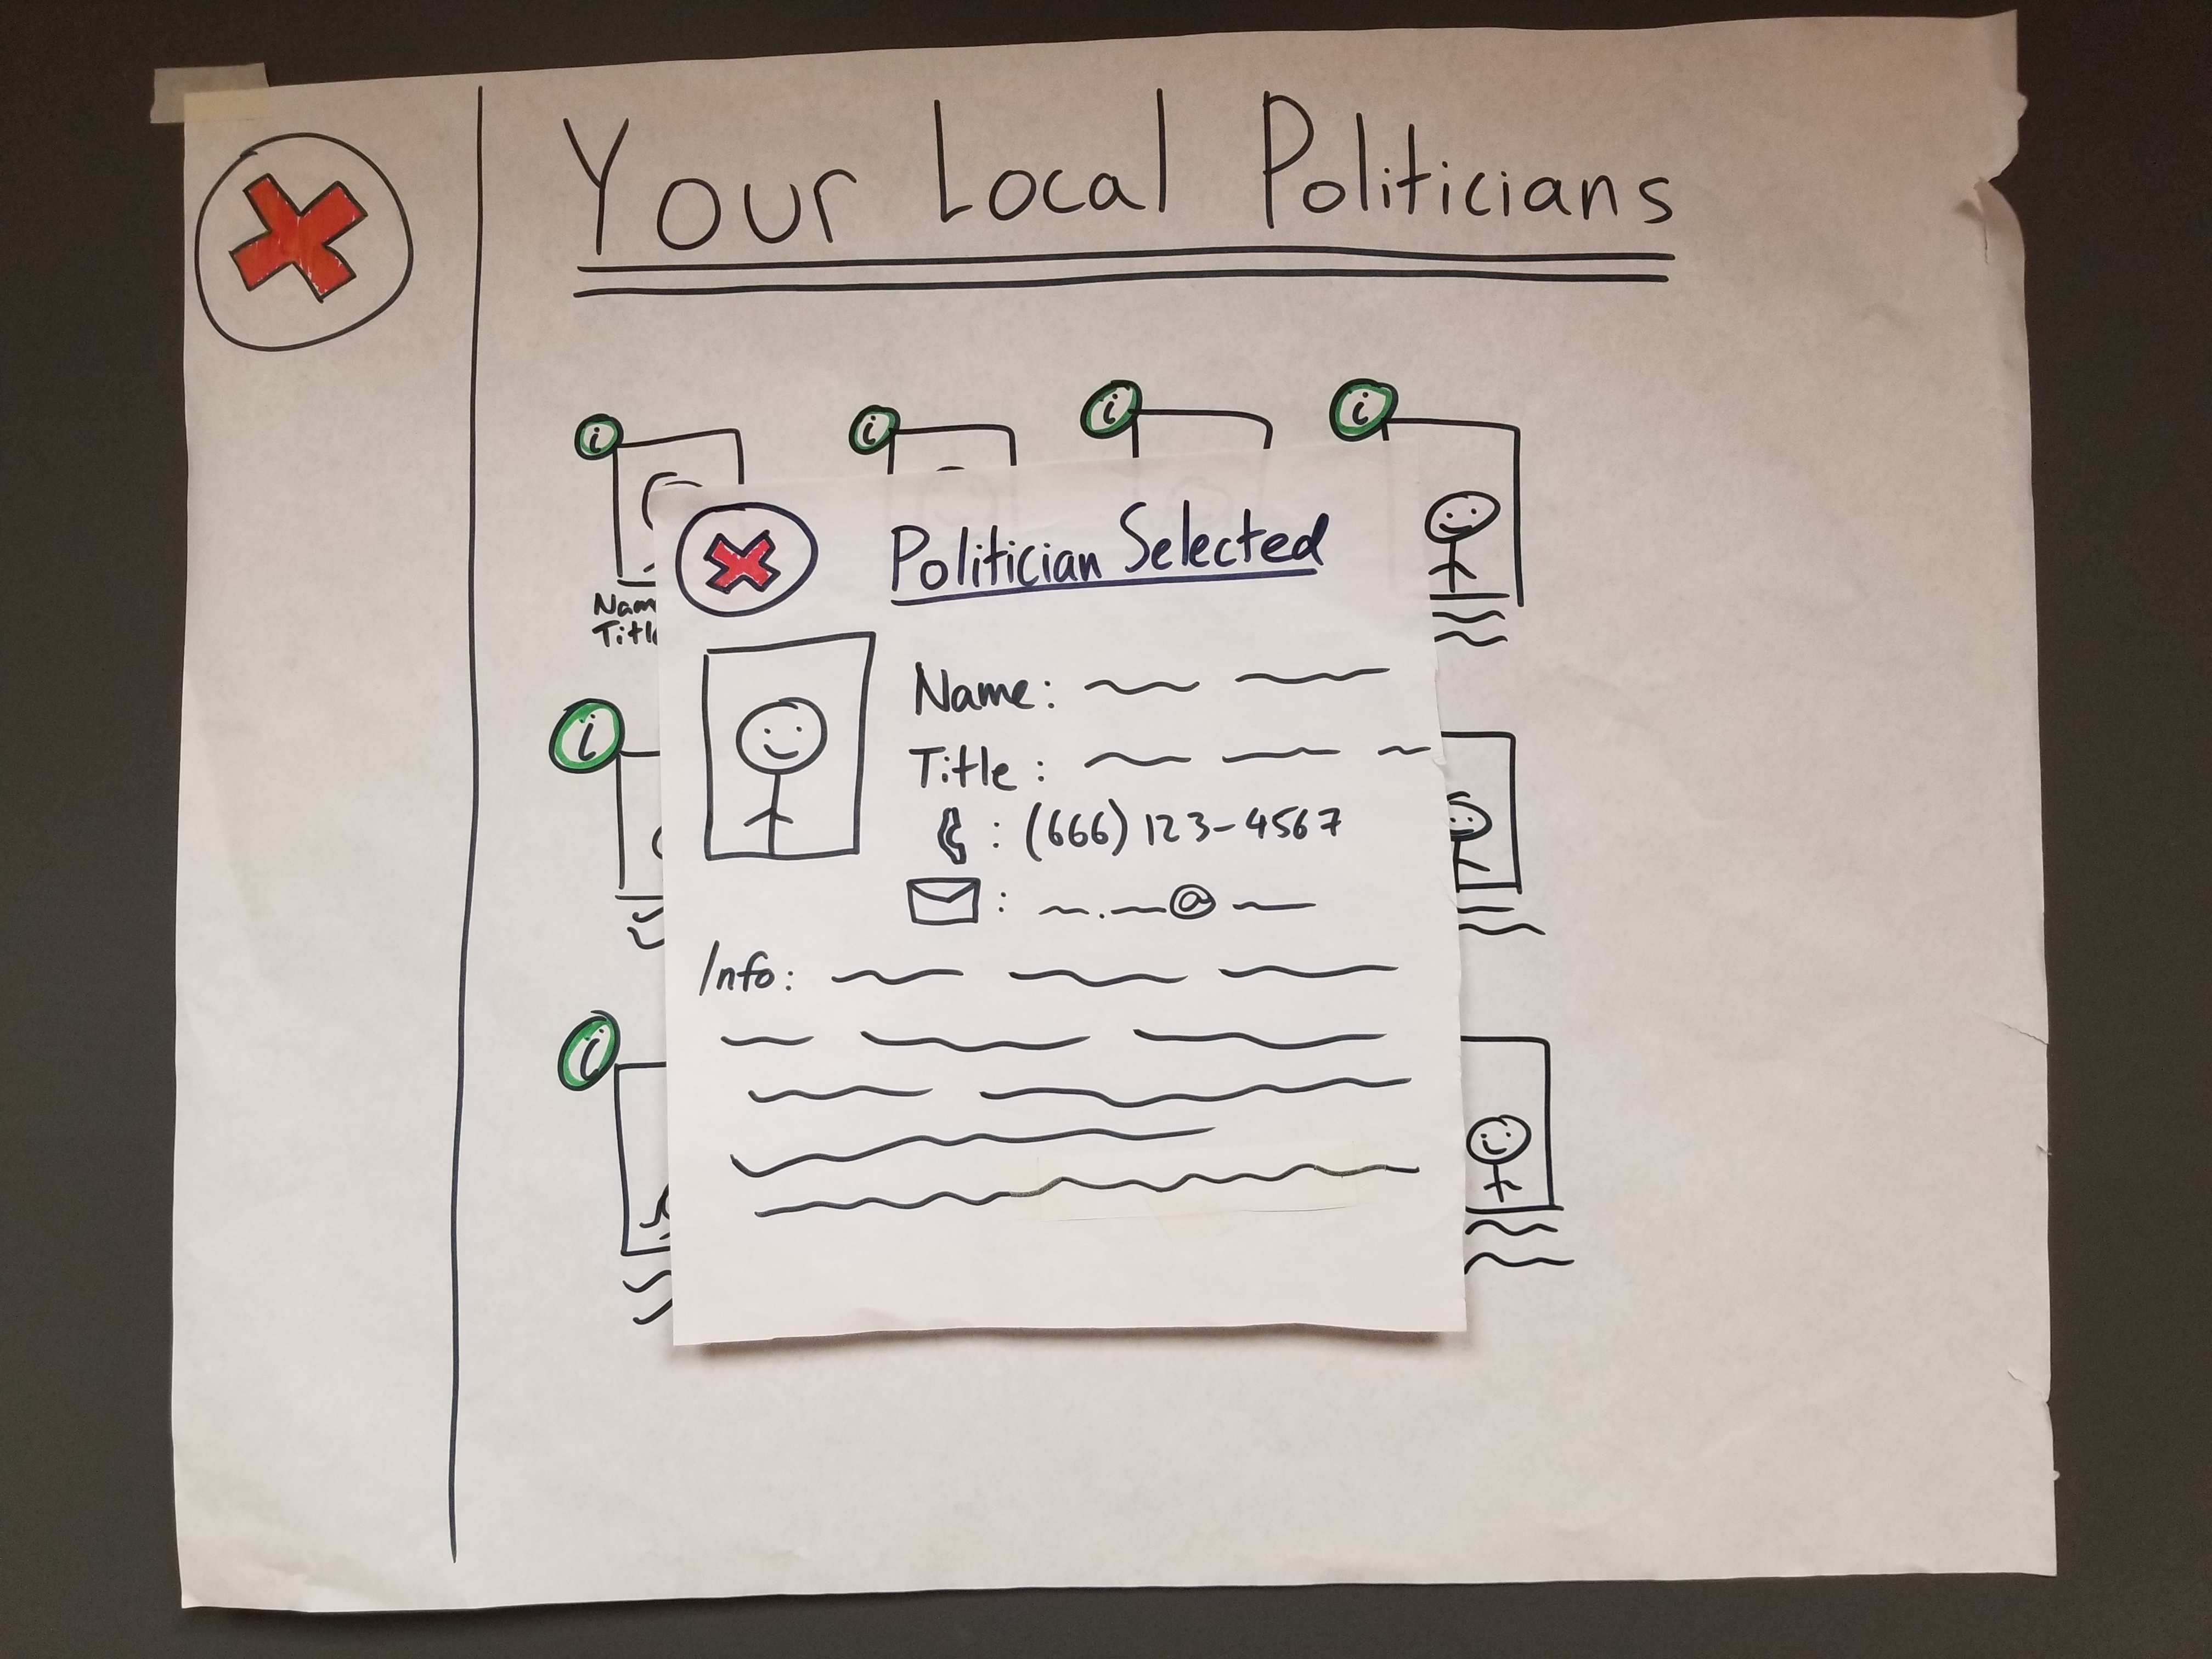 Your Local Politicians
i
i
i
i
Politician Selected
Name:
Title:
: (666) 123-4567
: . @
Info:
i
i